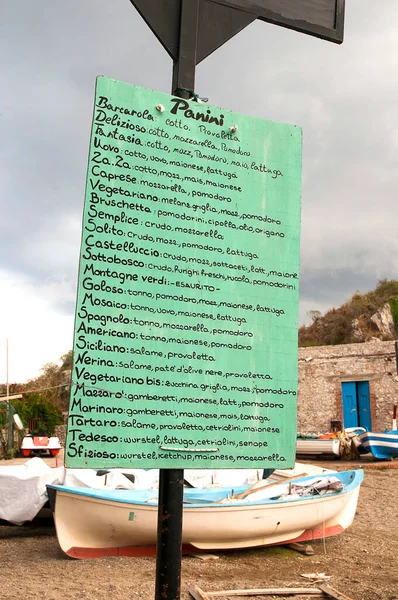 Panini
Barcarola: cotto, Provoletta
Delizioso: cotto, mozzarella, Pomodoro
Fantasia: cotto, mozz, Pomodoro, mais, lattuga
Uovo: cotto, uovo, maionese, lattuga
2a.2a: cotto, mozz, mais, maionese
Caprese: mozzarella, pomodoro
Vegetariano: melanz. griglia, mozz, pomodoro
Bruschetta: pomodorini, cipolla, olio, origano
Semplice: crudo, mozzarella
Solito: crudo, mozz, pomodoro, lattuga
Castelluccio: crudo, mozz, sottaceti, latt, maione
Sottobosco: crudo, funghi freschi, rucola, pomodorini
Montagne verdi: -ESAURITO-
Goloso: tonno, pomodoro, mozz, maionese, lattuga
Mosaico: tonno, mais, maionese, lattuga
Spagnolo: tonno, mozzarella, pomodoro
Americano: tonno, maionese, pomodoro
Siciliano: salame, provoletta
Nerina: salame, paté d'olive nere, provoletta
Vegetariano bis: zucchina griglia, mozz, pomodoro
Mazarò: gamberetti, maionese, latt, pomodoro
Marinaro: gamberetti, maionese, mais, lattuga
Tartaro: salame, provoletta, cetriolini, maionese
Tedesco: wurstel, lattuga, cetriolini, senape
Sfizioso: wurstel, ketchup, maionese, mozzarella